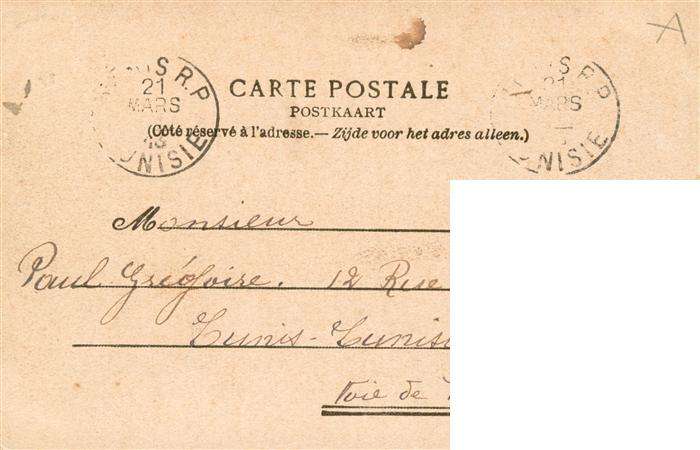 TUNIS R.P
21
MARS
TUNISIE
CARTE POSTALE
POSTKAART
(Côté réservé à l'adresse.— Zijde voor het adres alleen.)
TUNIS R.P
21
MARS
TUNISIE
A
Monsieur
Paul Grégoire. 12 Rue
Tunis-Tunis
Voie de